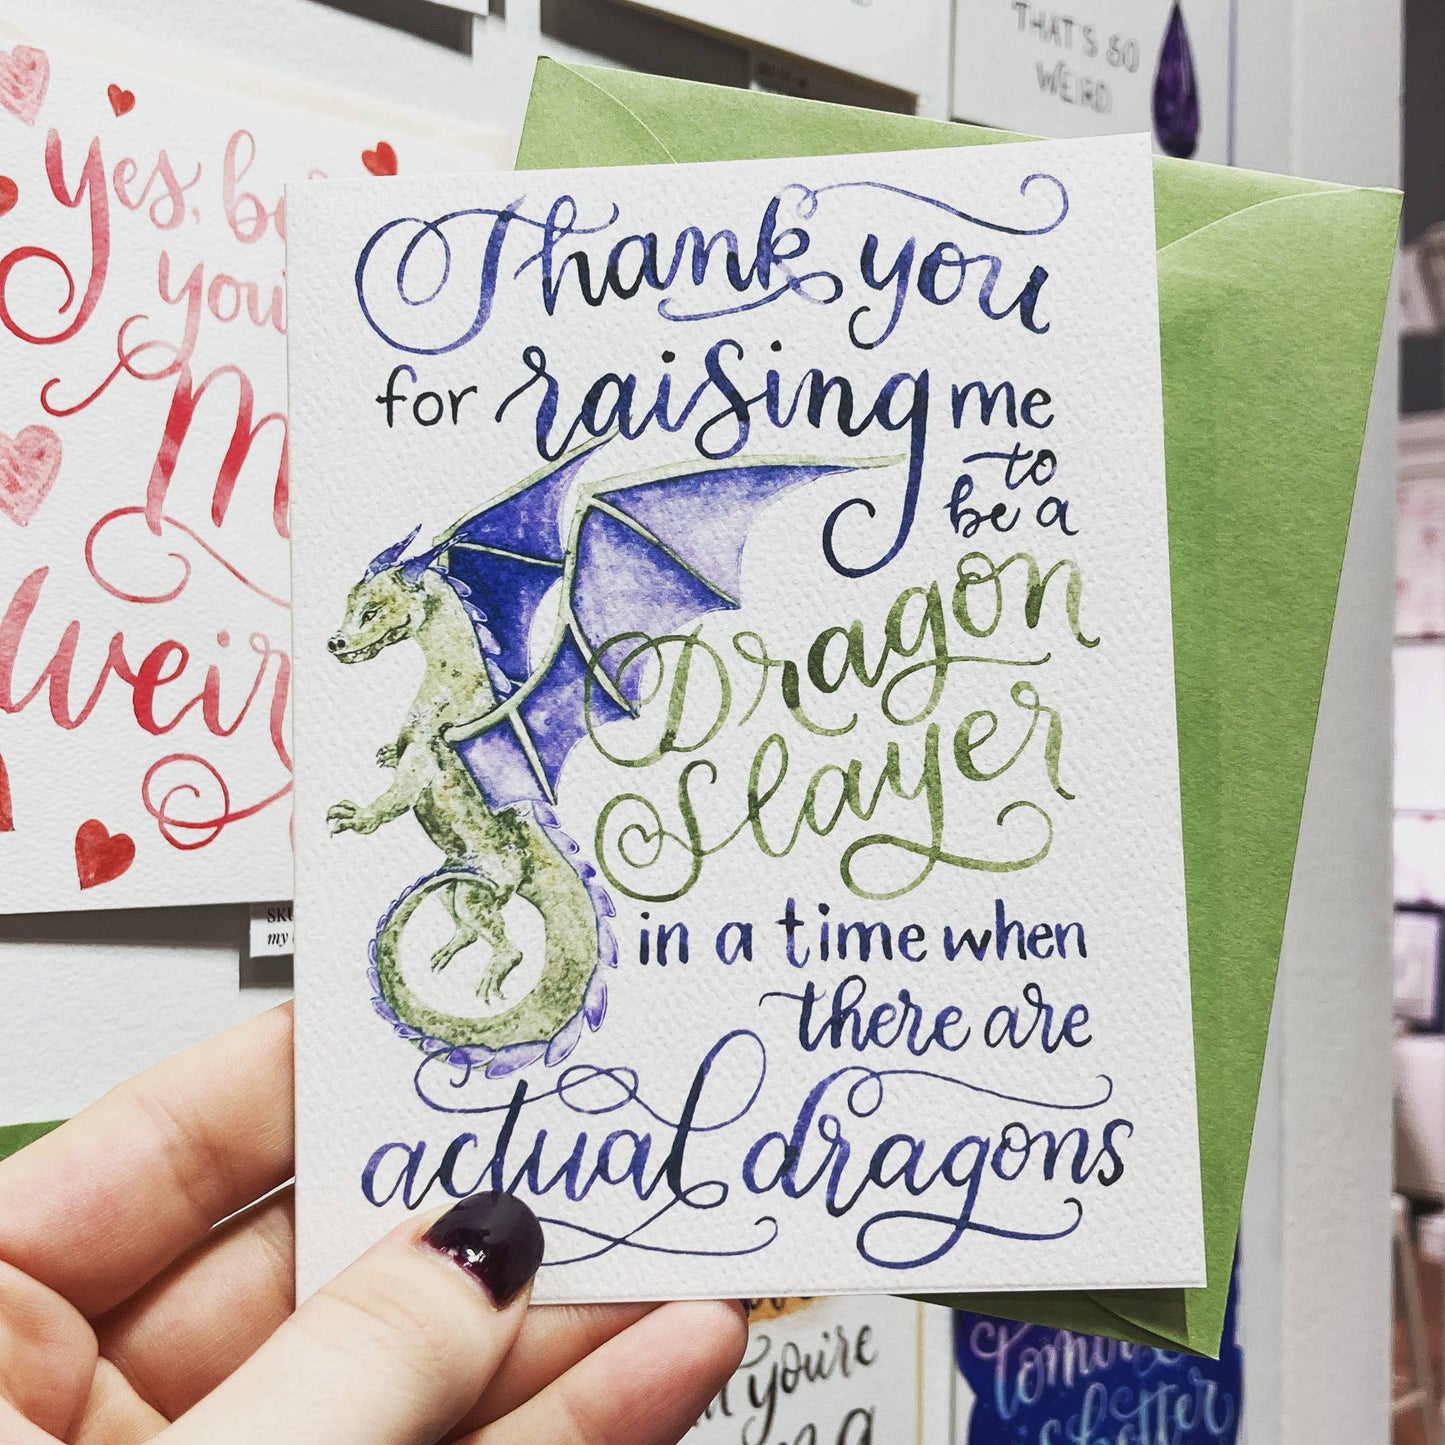 Thank you
for raising me
to
be a
Dragon
Slayer
in a time when
there are
actual dragons
yes, 
you'
weir
SKU
my
THAT'S SO
WEIRD
you're
a
is better